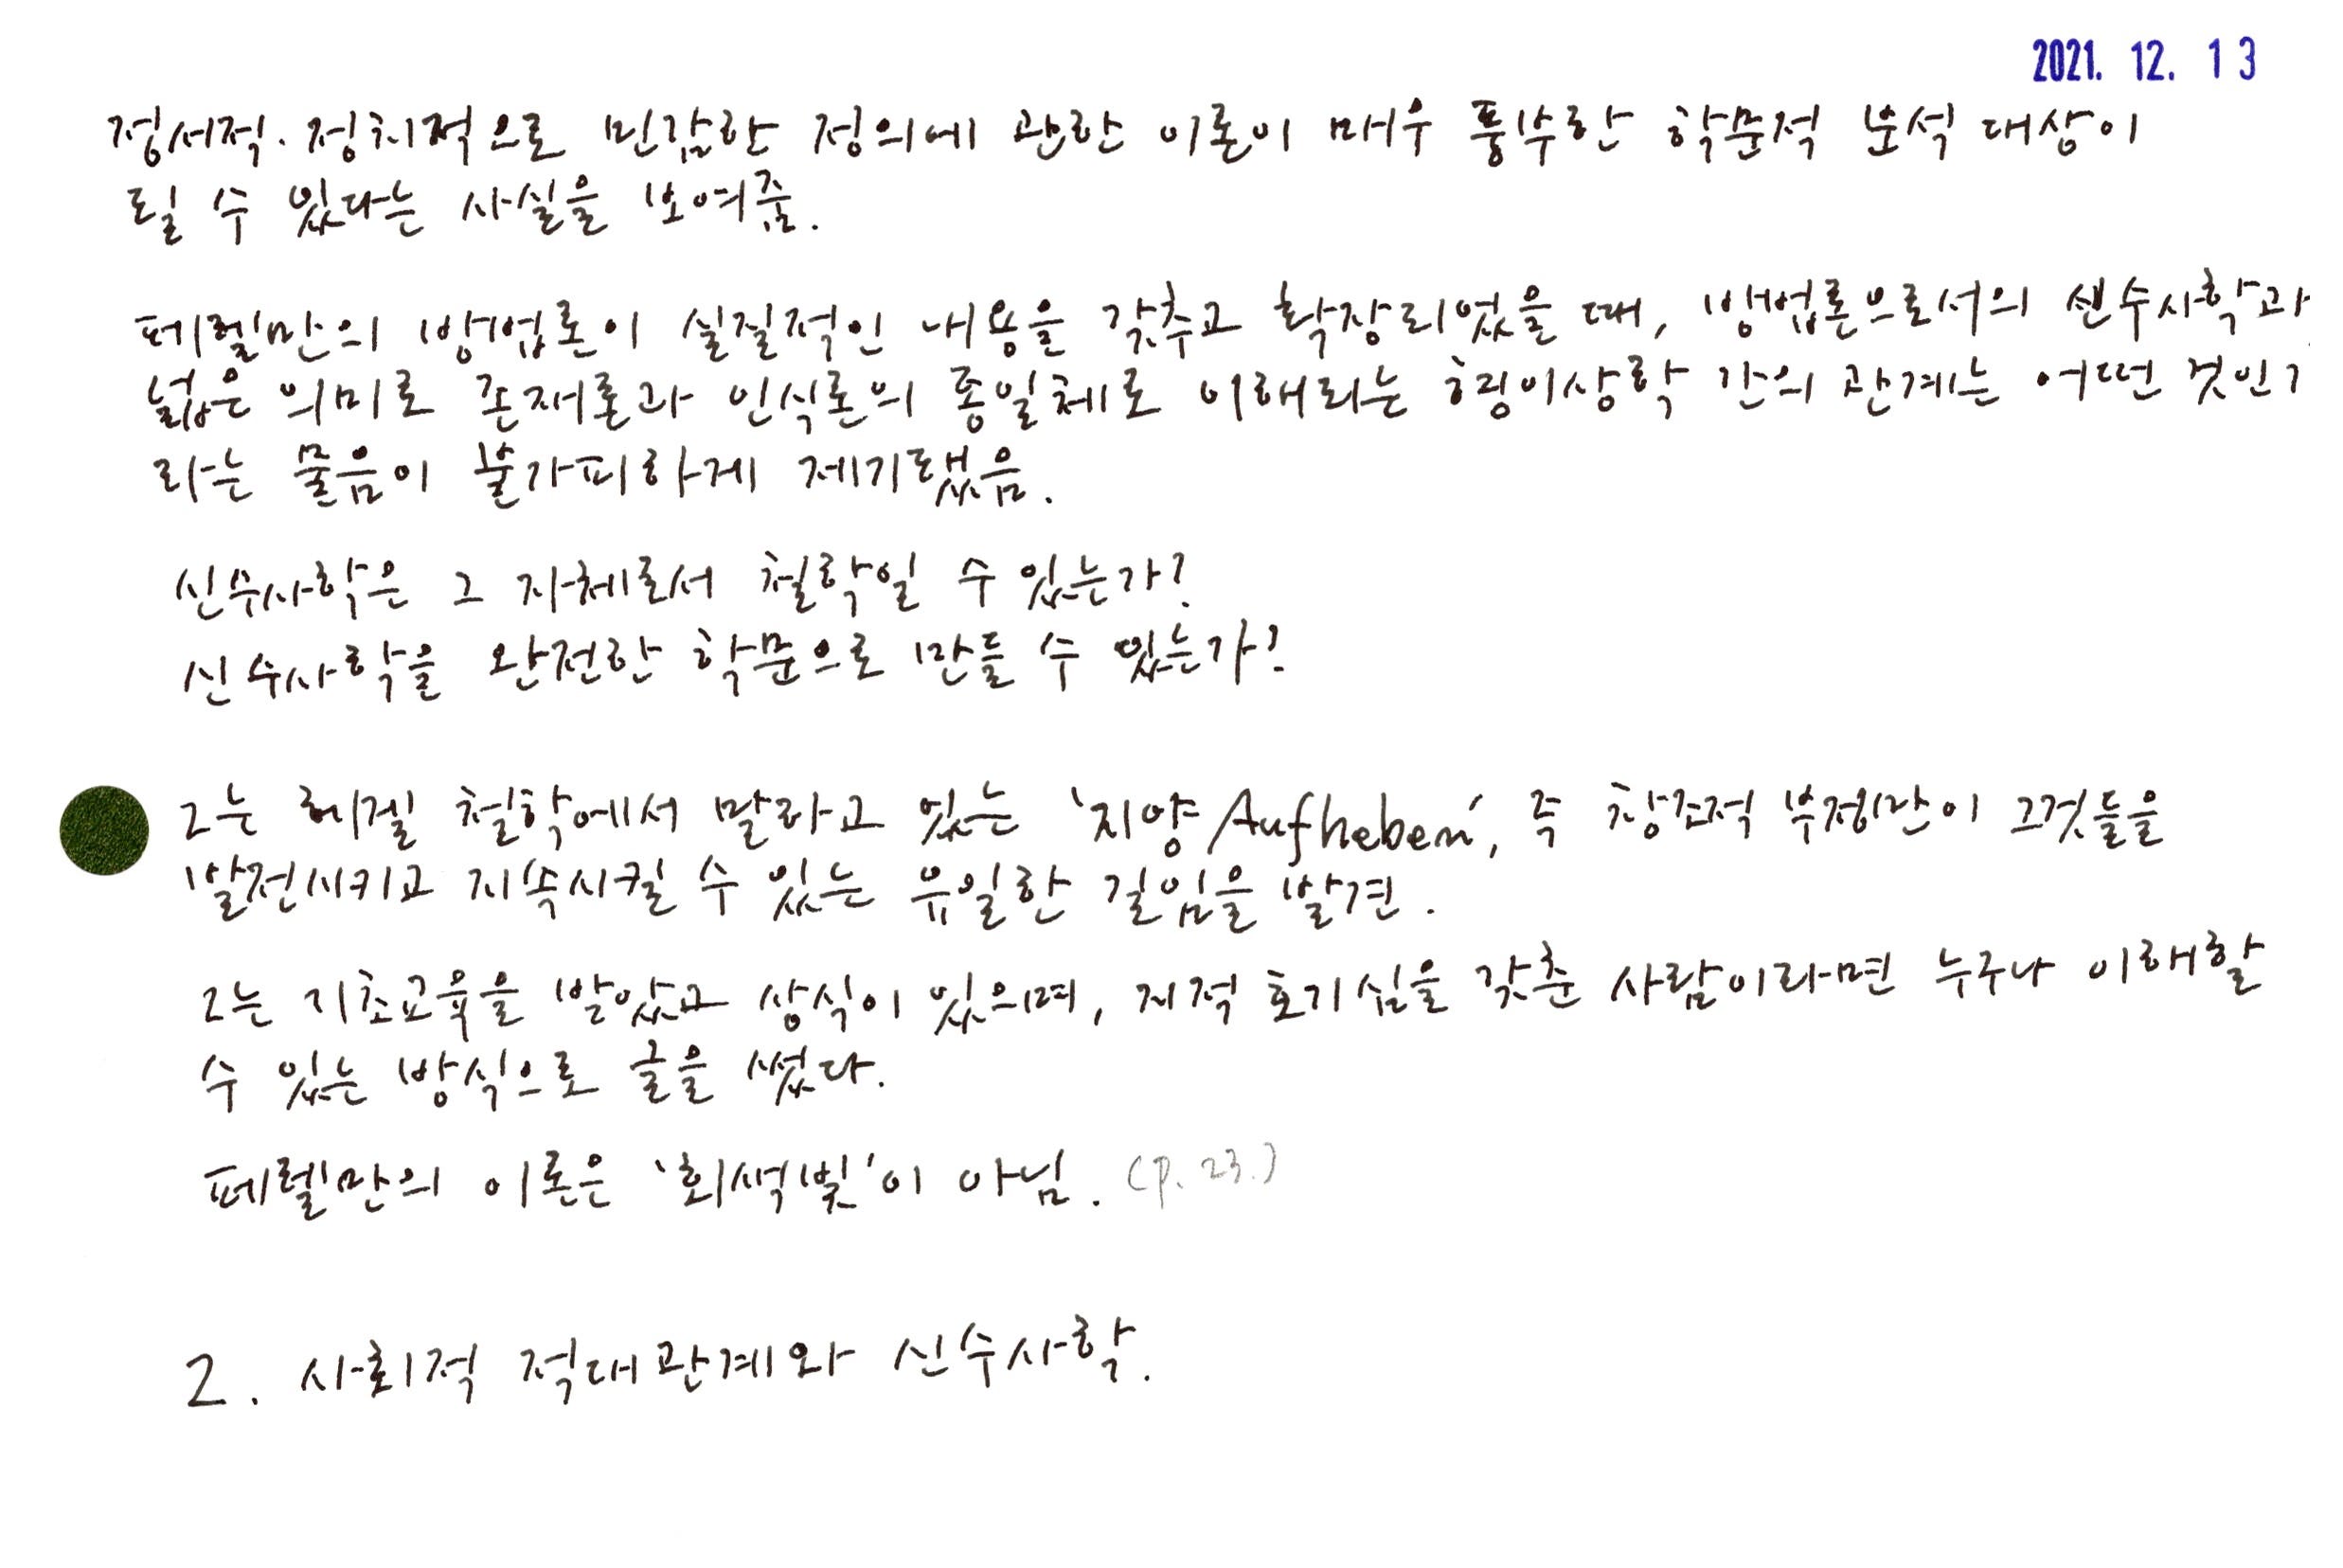 2021. 12. 13
정서적·정치적으로 민감한 정의에 관한 이론이 매우 풍부한 학문적 분석 대상이
될 수 있다는 사실을 보여줌.
페렐만의 방법론이 실질적인 내용을 갖추고 확장되었을 때, 방법론으로서의 신수사학과
넓은 의미로 존재론과 인식론의 통일체로 이해되는 형이상학 간의 관계는 어떤 것인가
라는 물음이 불가피하게 제기됐음.
신수사학은 그 자체로서 철학일 수 있는가?
신수사학을 완전한 학문으로 만들 수 있는가?
그는 헤겔 철학에서 말하고 있는 '지양 Aufheben', 즉 창조적 부정만이 그것들을
발전시키고 지속시킬 수 있는 유일한 길임을 발견.
그는 기초교육을 받았고 상식이 있으며, 지적 호기심을 갖춘 사람이라면 누구나 이해할
수 있는 방식으로 글을 썼다.
페렐만의 이론은 '회색빛'이 아님. (p. 23.)
2. 사회적 적대관계와 신수사학.